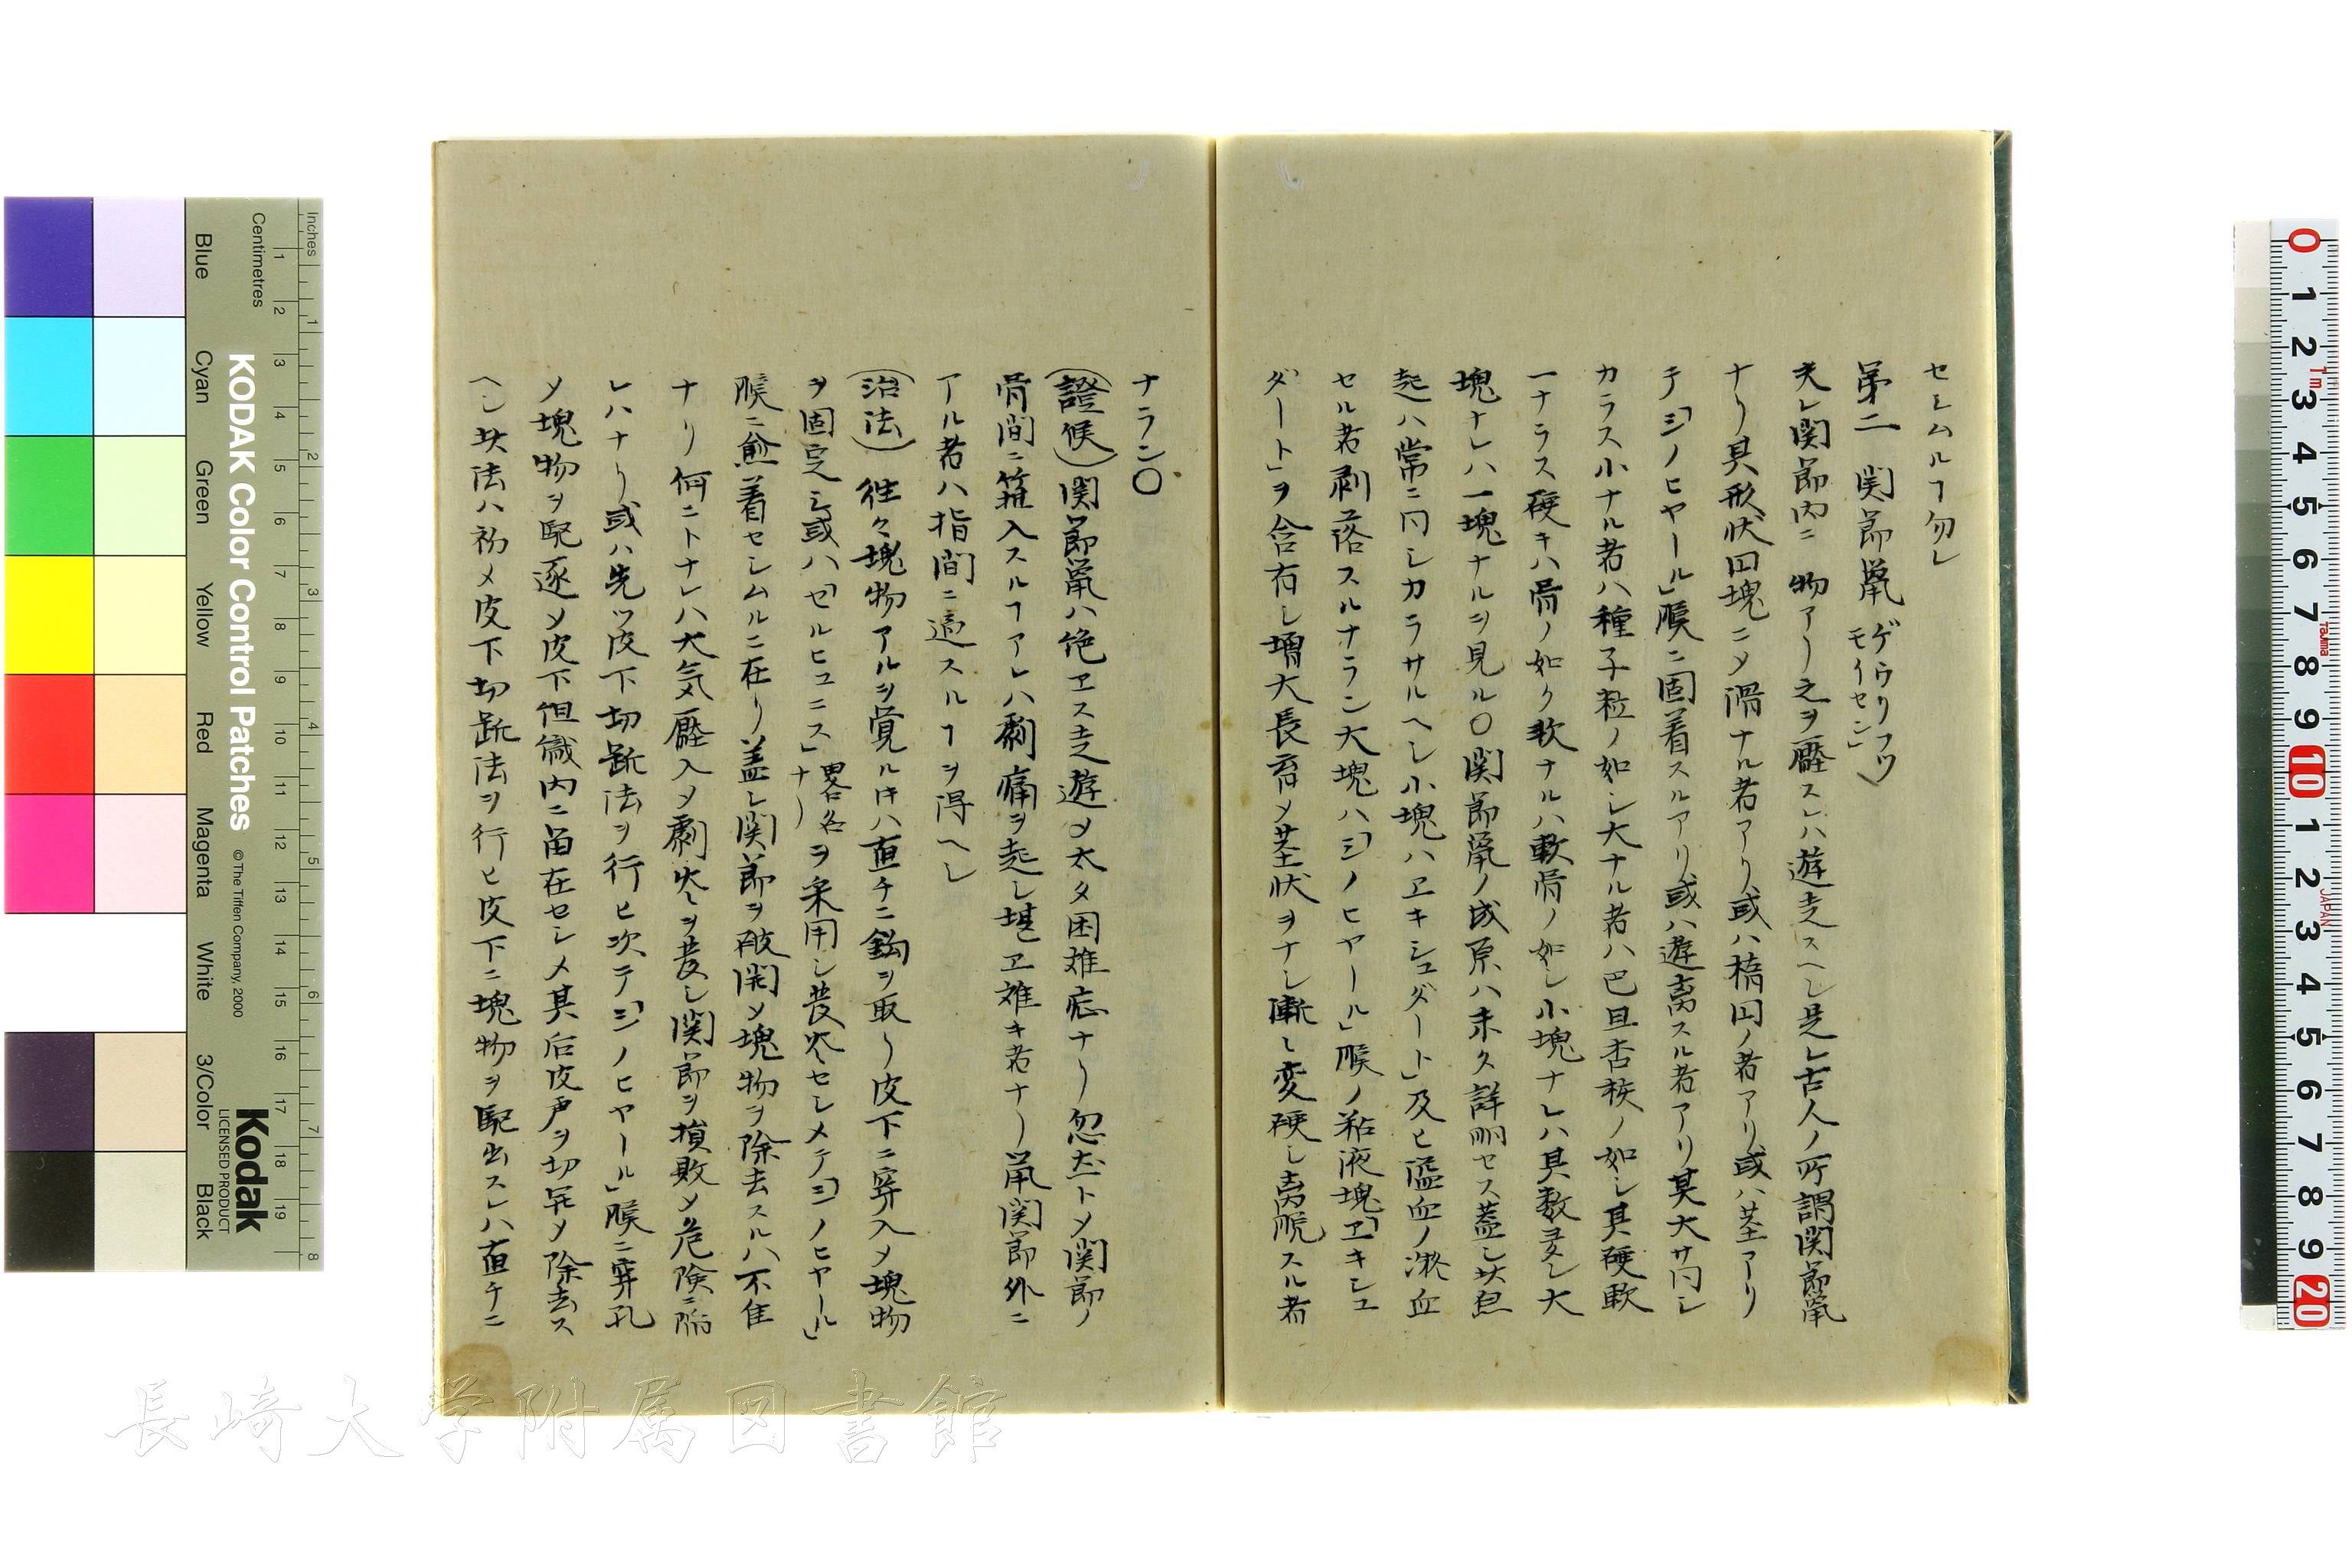 セシムルヿ勿レ
第二 関節鼠 ゲウリフツ
モイセン」
夫レ関節内ニ物アリ之ヲ壓スレハ遊走スヘシ是レ古人ノ所謂関節鼠
ナリ其形状円塊ニメ滑ナル者アリ或ハ楕円ノ者アリ或ハ茎アリ
テ「シノヒヤール」膜ニ固着スルアリ或ハ遊离スル者アリ其大サ同シ
カラス小ナル者ハ種子粒ノ如シ大ナル者ハ巴旦杏核ノ如シ其硬軟
一ナラス硬キハ骨ノ如ク軟ナルハ軟骨ノ如シ小塊ナレハ其数多シ大
塊ナレハ一塊ナルヲ見ル〇関節鼠ノ成原ハ未タ詳明セス蓋シ其
起ハ常ニ同シカラサルヘシ小塊ハヱキシュダート」及ヒ溢血ノ凝血
セル者剥落スルナラン大塊ハ「シノヒヤール」膜ノ粘液塊「ヱキシュ
ダート」ヲ含有シ増大長育メ茎状ヲナシ漸々変硬シ离脱スル者
ナラン〇
(證候)関節鼠ハ絶ヱス走遊メ太タ困難症ナリ忽然トメ関節ノ
骨間ニ箝入スルヿアレハ劇痛ヲ起シ堪ヱ難キ者ナリ鼠関節外ニ
アル者ハ指間ニ適スルヿヲ得ヘシ
(治法)往々塊物アルヲ覚ル片ハ直チニ鈎ヲ取リ皮下ニ穿入メ塊物
ヲ固定シ或ハ「セルヒュニス」畧名
ナリ ヲ采用シ焮衝セシメテ「シノヒヤール」
膜ニ愈着セシムルニ在リ蓋シ関節ヲ破開メ塊物ヲ除去スルハ不佳
ナリ何ニトナレハ大気壓入メ劇炎ヲ発シ関節ヲ損敗メ危険ニ陥
レハナリ或ハ先ツ皮下切断法ヲ行ヒ次テ「シノヒヤール」膜ニ穿孔
メ塊物ヲ駆逐メ皮下但織内ニ畄在セシメ其后皮ヲ切開メ除去ス
ヘシ其法ハ初メ皮下切断法ヲ行ヒ皮下ニ塊物ヲ駆出スレハ直チニ
長崎大学附属図書館
KODAK Color Control Patches
© The Tiffen Company, 2000
Kodak
LICENSED PRODUCT
Inches
Centimetres
Blue
Cyan
Green
Yellow
Red
Magenta
White
3/Color
Black
1 2 3 4 5 6 7 8 9 10 11 12 13 14 15 16 17 18 19
1 2 3 4 5 6 7 8
0 1 2 3 4 5 6 7 8 9 10 1 2 3 4 5 6 7 8 9 20
1m
Tajima
JAPAN